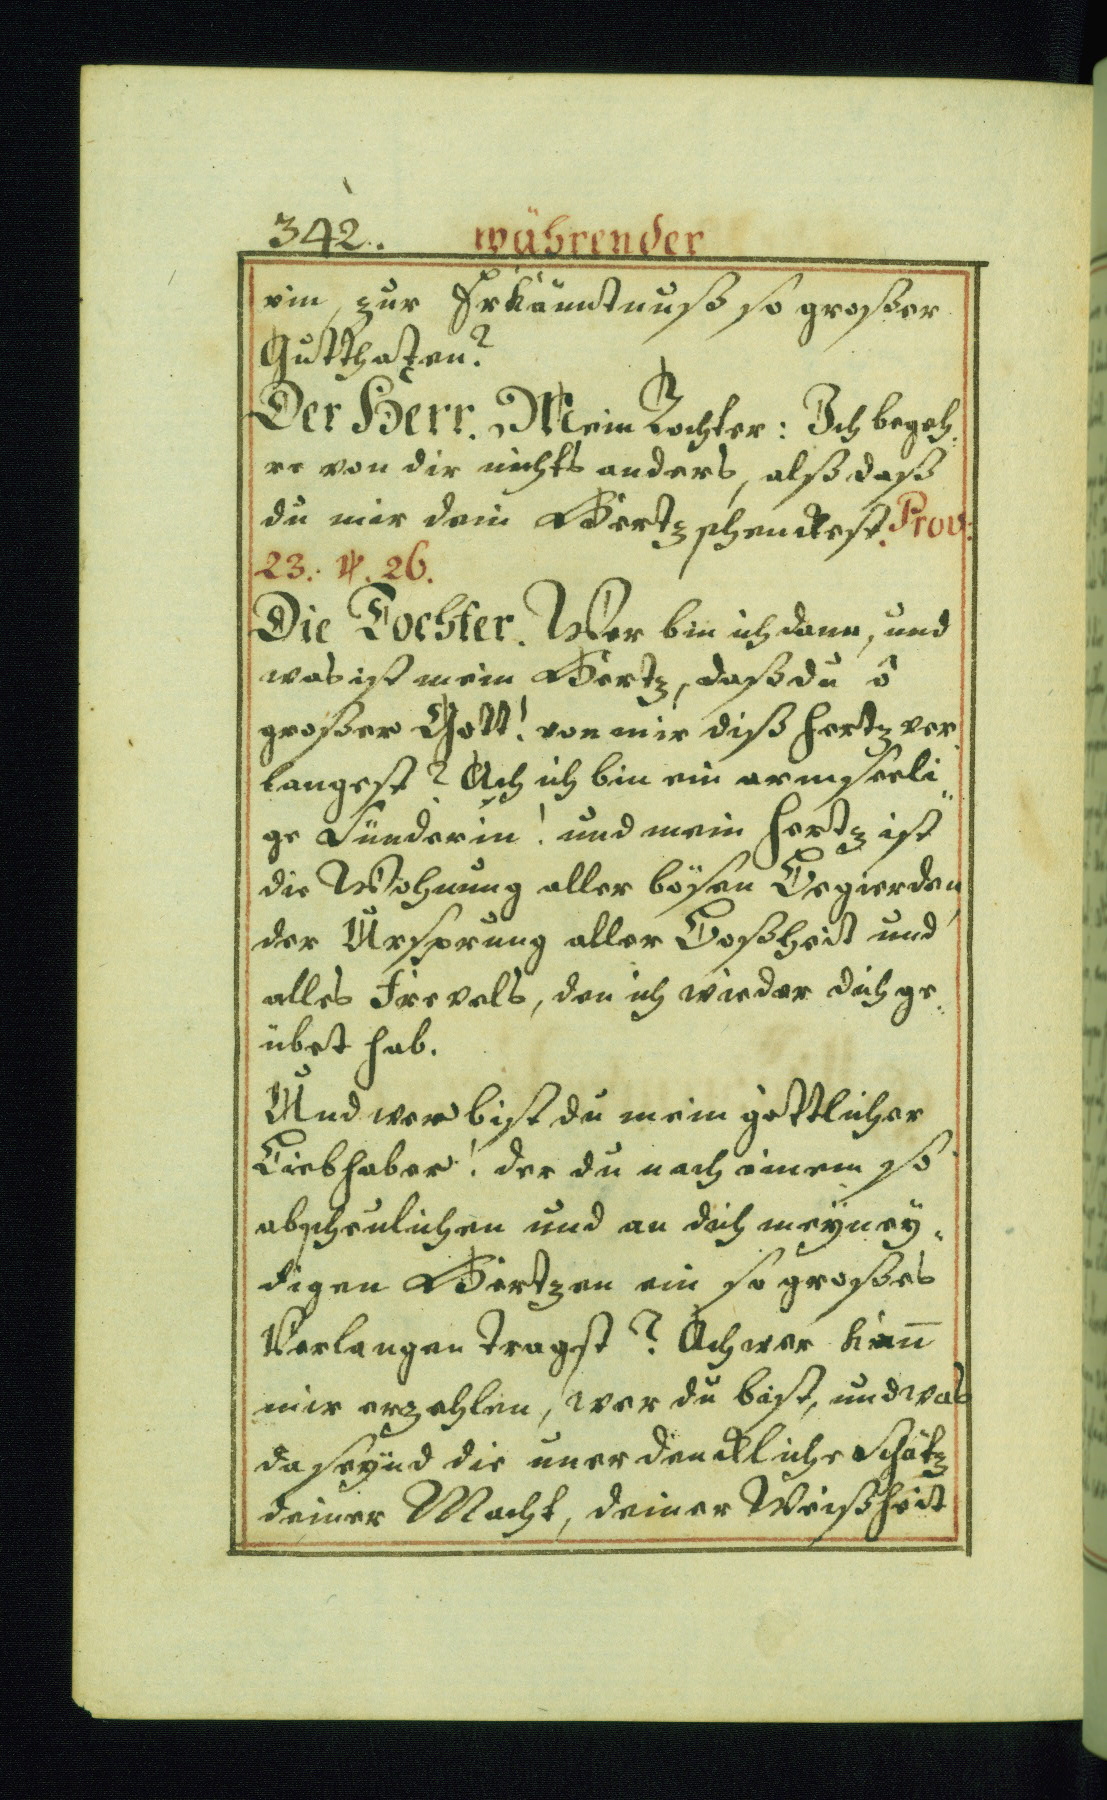 342. währender
rin, zur Erkänntnuß so großer
Gutthaten?
Der Herr. Mein Tochter: Ich begeh,
re von dir nichts anders, alß daß
du mir dein Hertz schenckest. Prov:
23. ℣. 26.
Die Tochter. Wer bin ich dann, und
was ist mein Hertz, daß du ô
großer Gott! von mir diß Hertz ver,
langest? Ach ich bin ein armseeli„
ge Sünderin! und mein Hertz ist
die Wohnung aller bösen Begierden
der Ursprung aller Boßheit und
alles Frevels, den ich wieder dich ge„
übet hab.
Und wer bist du mein göttlicher
Liebhaber! der du nach einem so
abscheulichen und an dich meyney„
digen Hertzen ein so großes
Verlangen tragst? Ach wer kan̄
mir erzehlen, wer du bist, und was
da seynd die unerdenckliche Schätz
deiner Macht, deiner Weißheit